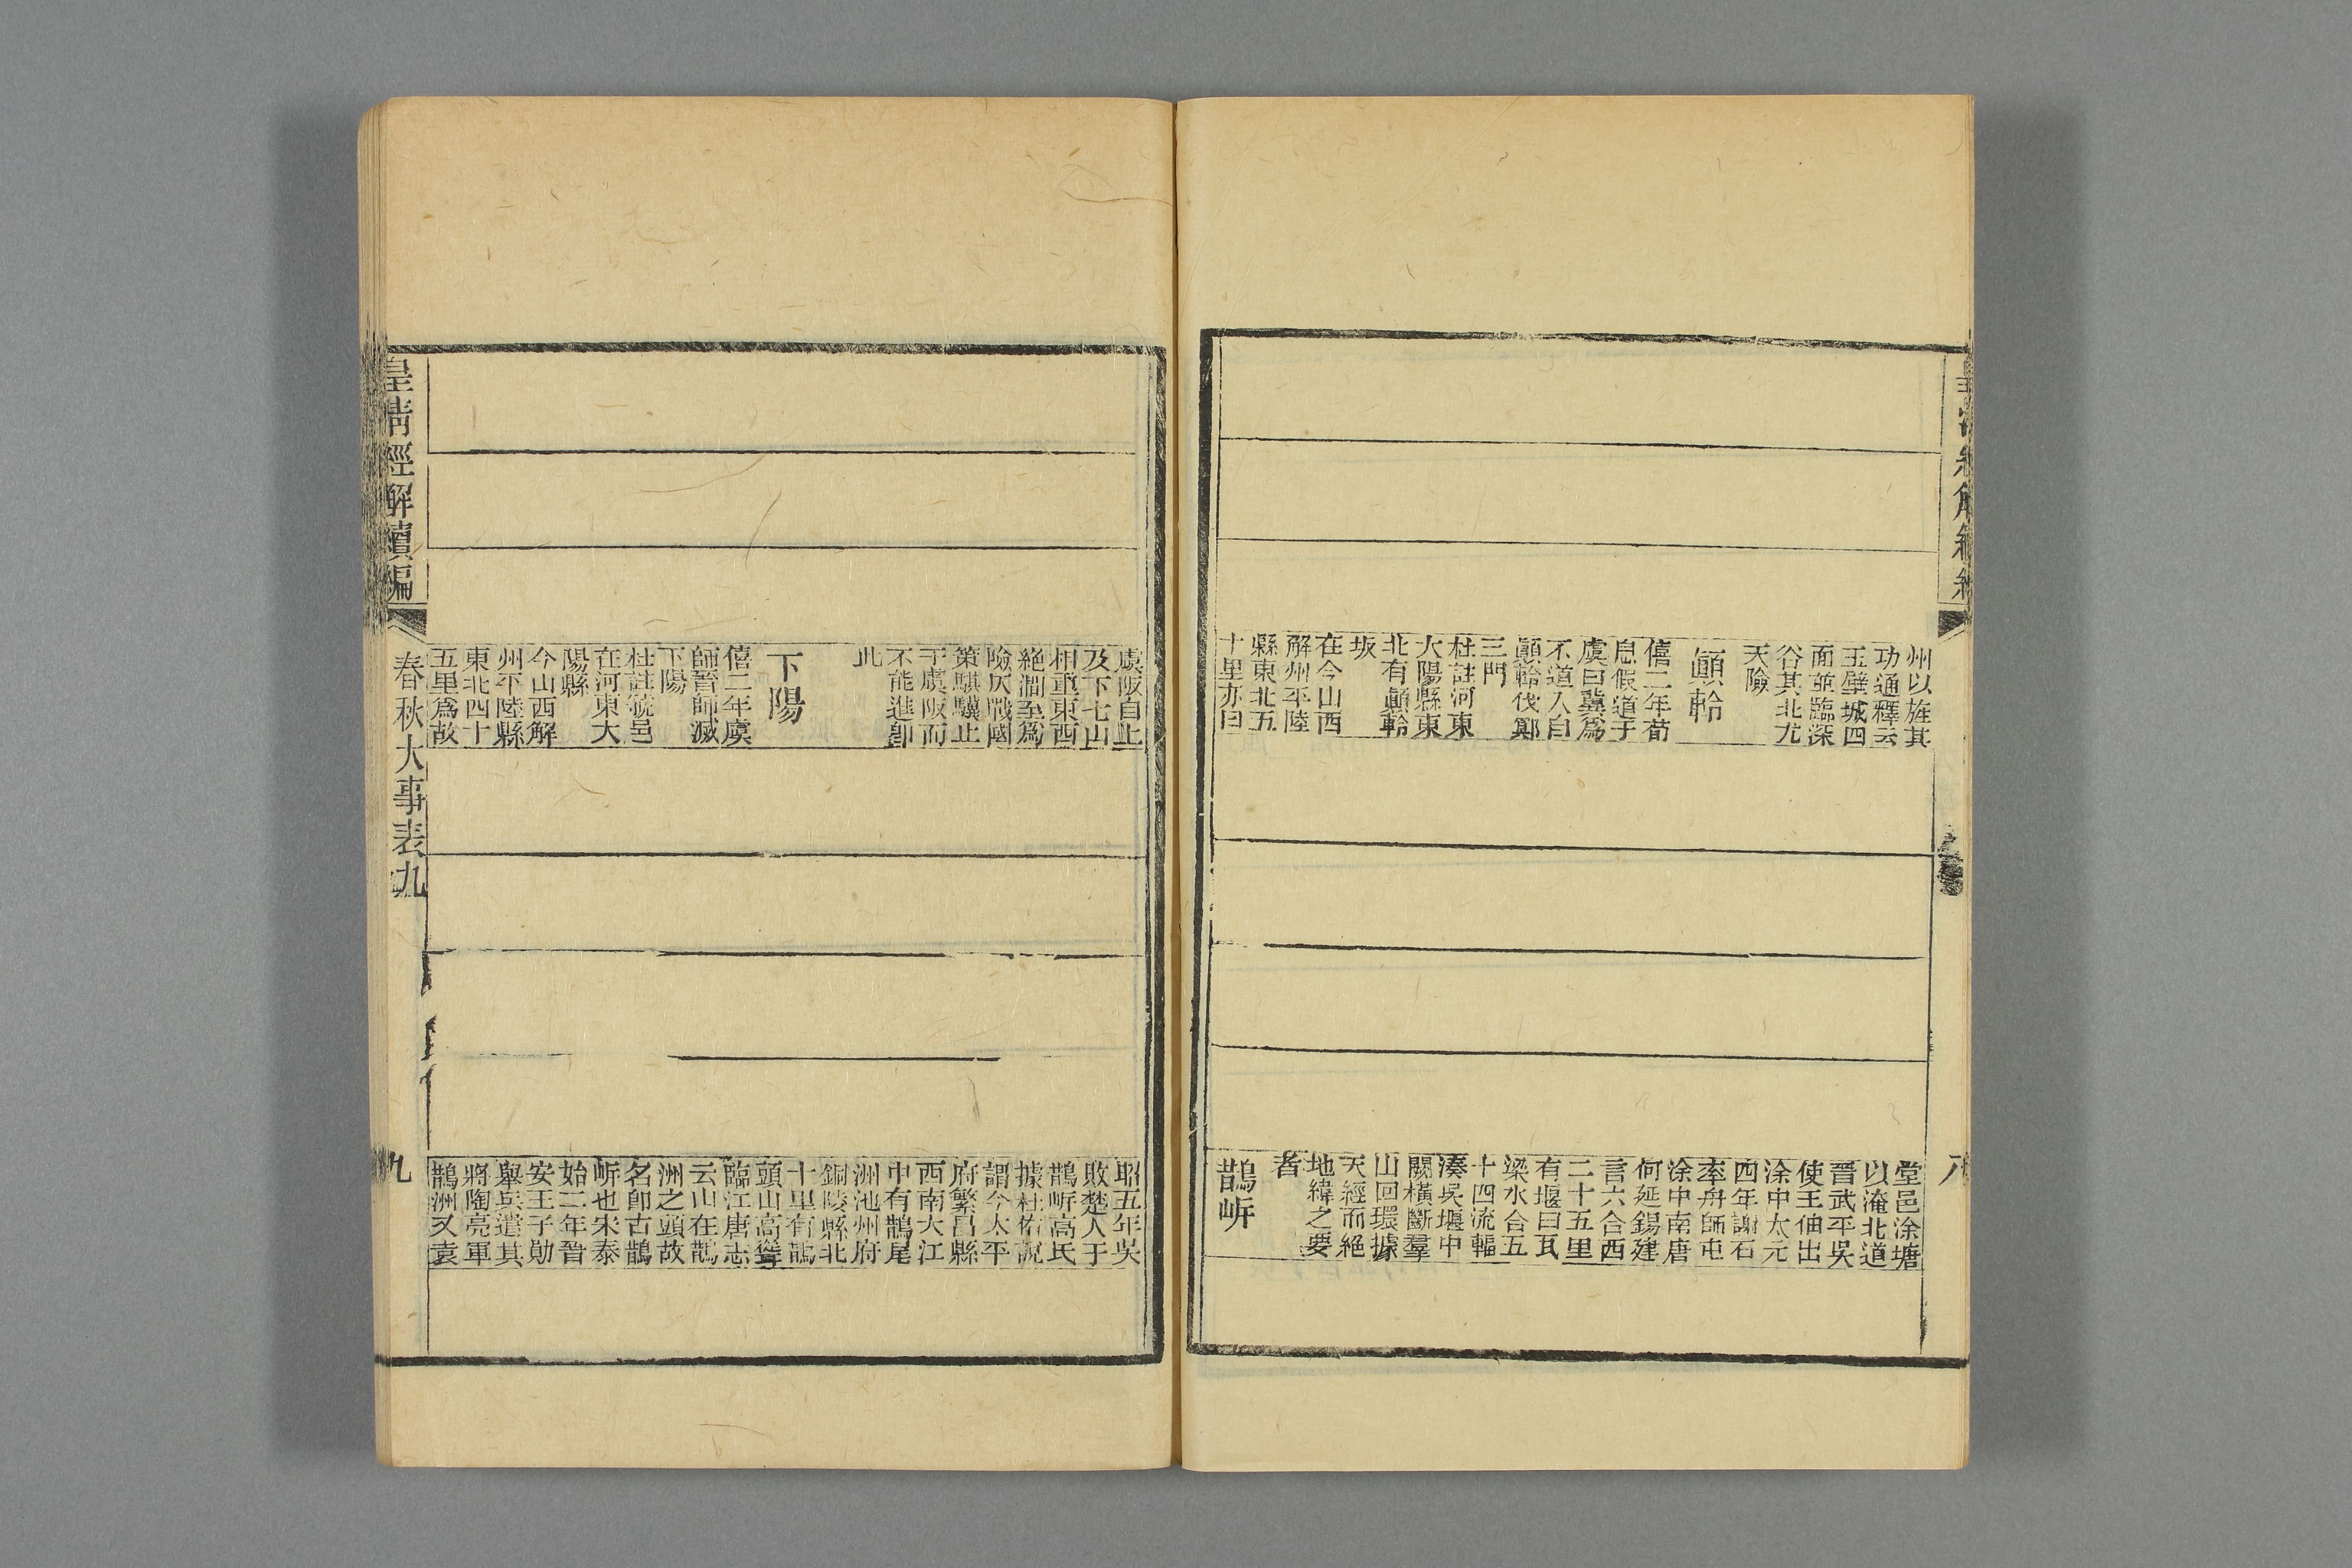 州以旌其
功通釋云
玉壁城四
面並臨深
谷其北尤
天險
顚軨
僖二年荀
息假道于
虞曰冀爲
不道入自
顚軨伐鄍
三門
杜註河東
大陽縣東
北有顚軨
坂
在今山西
解州平陸
縣東北五
十里亦曰
堂邑涂塘
以淹北道
晉武平吳
使王伷出
涂中太元
四年謝石
率舟師屯
涂中南唐
何延錫建
言六合西
二十五里
有堰曰瓦
梁水合五
十四流輻
湊吳堰中
闕橫斷羣
山回環據
天經而絕
地緯之要
者
鵲岍
八
虞阪自上
及下七山
相重東西
絕澗至爲
險仄戰國
策騏驥止
于虞阪而
不能進卽
此
下陽
僖二年虞
師晉師滅
下陽
杜註虢邑
在河東大
陽縣
今山西解
州平陸縣
東北四十
五里爲故
昭五年吳
敗楚人于
鵲岍高氏
據杜佑說
謂今太平
府繁昌縣
西南大江
中有鵲尾
洲池州府
銅陵縣北
十里有鵲
頭山高聳
臨江唐志
云山在鵲
洲之頭故
名卽古鵲
岍也宋泰
始二年晉
安王子勛
舉兵遣其
將陶亮軍
鵲洲又袁
皇清經解續編
春秋大事表九
九